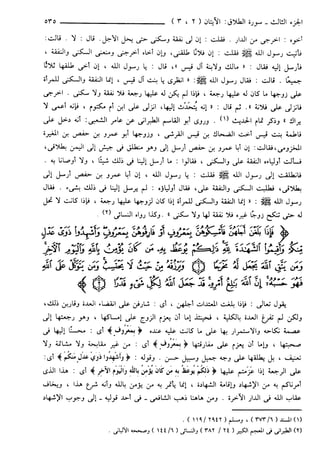 الجزء الثالث - سورة الطلاق: الآيتان ( ٢ ، ٣ ) ٥٣٥
أخوه : اخرجي من الدار . فقلت : إن لي نفقة وسكنى حتى يحل الأجل . قال : لا . قالت :
فأتيت رسول الله ﷺ فقلت : إن فلانًا طلقني، وإن أخاه أخرجني ومنعني السكنى والنفقة ،
فأرسل إليه فقال : « مالك ولابنة آل قيس »، قال : يا رسول الله ، إن أخي طلقها ثلاثًا
جميعًا . قالت : فقال رسول الله ﷺ : « انظري يا بنت آل قيس ، إنما النفقة والسكنى للمرأة
على زوجها ما كان له عليها رجعة ، فإذا لم يكن له عليها رجعة فلا نفقة ولا سكنى . اخرجي
فانزلي على فلانة ». ثم قال : « إنه يُتحدّث إليها، انزلي على ابن أم مكتوم ، فإنه أعمى لا
يراك » وذكر تمام الحديث (١) . وروى أبو القاسم الطبراني عن عامر الشعبي: أنه دخل على
فاطمة بنت قيس أخت الضحاك بن قيس القرشي ، وزوجها أبو عمرو بن حفص بن المغيرة
المخزومي،فقالت: إن أبا عمرو بن حفص أرسل إلي وهو منطلق في جيش إلى اليمن بطلاقي،
فسألت أولياءه النفقة علي والسكنى ، فقالوا : ما أرسل إلينا في ذلك شيئًا ، ولا أوصانا به .
فانطلقت إلى رسول الله ﷺ فقلت : يا رسول الله ، إن أبا عمرو بن حفص أرسل إلي
بطلاقي، فطلبت السكنى والنفقة علي، فقال أولياؤه : لم يرسل إلينا في ذلك بشيء . فقال
رسول الله ﷺ : « إنما النفقة والسكنى للمرأة إذا كان لزوجها عليها رجعة ، فإذا كانت لا تحل
له حتى تنكح زوجًا غيره فلا نفقة لها ولا سكنى ». وكذا رواه النسائي (٢) .
﴿ فَإِذَا بَلَغْنَ أَجَلَهُنَّ فَأَمْسِكُوهُنَّ بِمَعْرُوفٍ أَوْ فَارِقُوهُنَّ بِمَعْرُوفٍ وَأَشْهِدُوا ذَوَيْ عَدْلٍ
مِّنكُمْ وَأَقِيمُوا الشَّهَادَةَ لِلَّهِ ذَٰلِكُمْ يُوعَظُ بِهِ مَن كَانَ يُؤْمِنُ بِاللَّهِ وَالْيَوْمِ الْآخِرِ
وَمَن يَتَّقِ اللَّهَ يَجْعَل لَّهُ مَخْرَجًا ۝ وَيَرْزُقْهُ مِنْ حَيْثُ لَا يَحْتَسِبُ وَمَن يَتَوَكَّلْ عَلَى
اللَّهِ فَهُوَ حَسْبُهُ إِنَّ اللَّهَ بَالِغُ أَمْرِهِ قَدْ جَعَلَ اللَّهُ لِكُلِّ شَيْءٍ قَدْرًا ۝ ﴾
يقول تعالى : فإذا بلغت المعتدات أجلهن ، أي : شارفن على انقضاء العدة وقاربن ذلك،
ولكن لم تفرغ العدة بالكلية ، فحينئذ إما أن يعزم الزوج على إمساكها ، وهو رجعتها إلى
عصمة نكاحه والاستمرار بها على ما كانت عليه عنده ﴿بِمَعْرُوفٍ﴾ أي : محسنًا إليها في
صحبتها ، وإما أن يعزم على مفارقتها ﴿ بِمَعْرُوفٍ ﴾ أي : من غير مقابحة ولا مشاتمة ولا
تعنيف ، بل يطلقها على وجه جميل وسبيل حسن . وقوله : ﴿ وَأَشْهِدُوا ذَوَيْ عَدْلٍ مِّنكُمْ ﴾ أي:
على الرجعة إذا عزمتم عليها ﴿ ذَٰلِكُمْ يُوعَظُ بِهِ مَن كَانَ يُؤْمِنُ بِاللَّهِ وَالْيَوْمِ الْآخِرِ ﴾ أي : هذا الذي
أمرناكم به من الإشهاد وإقامة الشهادة ، إنما يأتمر به من يؤمن بالله وأنه شرع هذا ، ويخاف
عقاب الله في الدار الآخرة . ومن هاهنا ذهب الشافعي - في أحد قوليه - إلى وجوب الإشهاد
(١) المسند ( ٣٧٣/٦ ) ، ومسلم ( ٢٩٤٢ / ١١٩ ) .
(٢) الطبراني في المعجم الكبير ( ٢٤ / ٣٨٢ ) والنسائي ( ١٤٤/٦ ) وصححه الألباني .